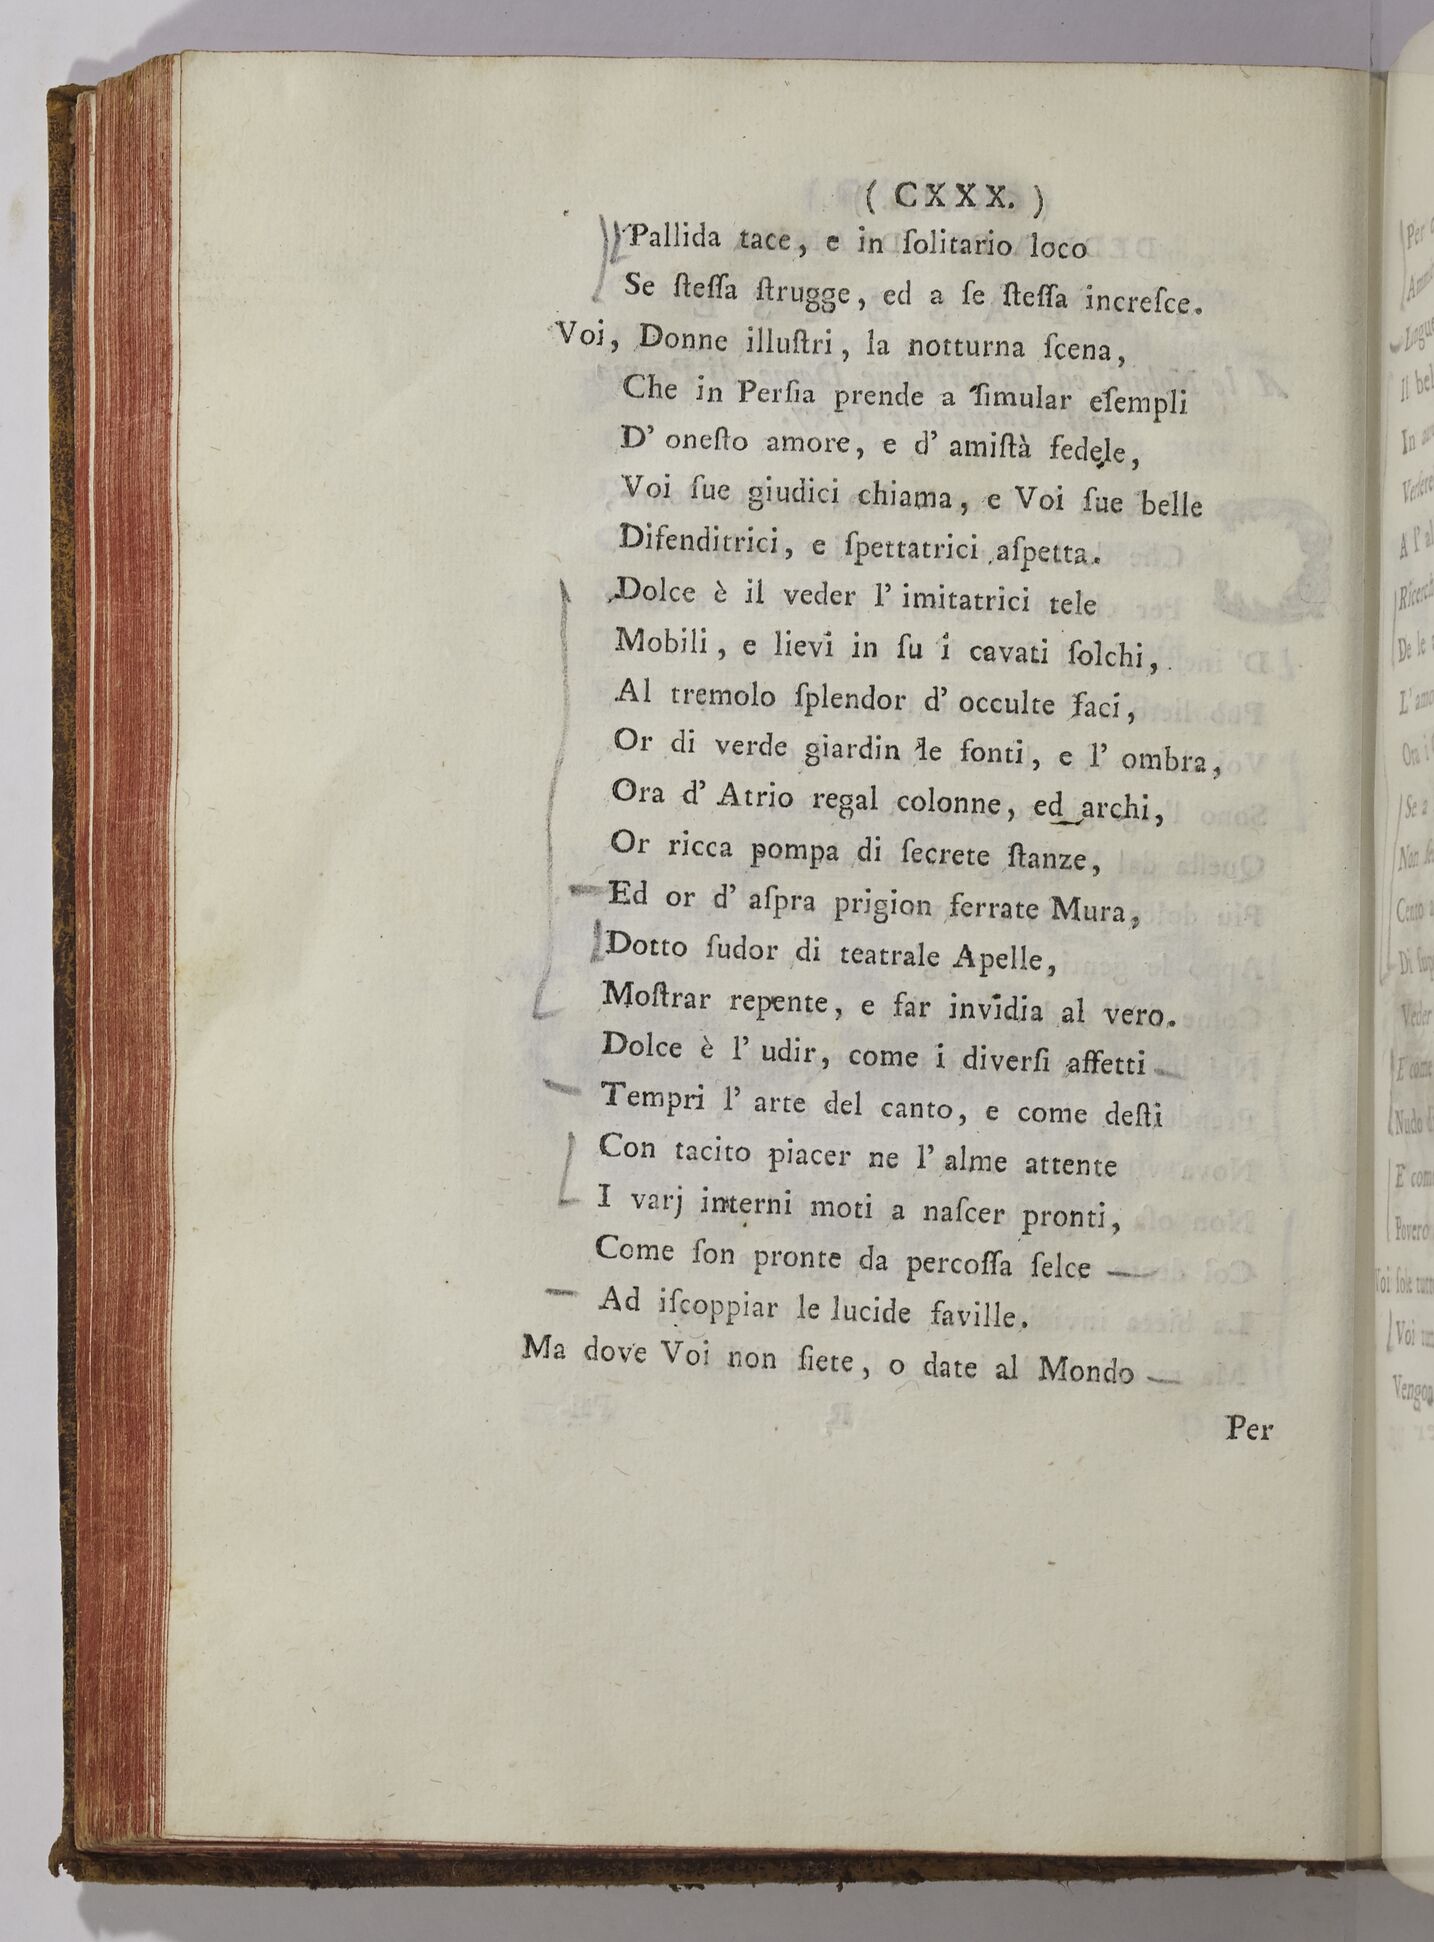 ( CXXX. )
Pallida tace, e in ſolitario loco
Se ſteſſa ſtrugge, ed a ſe ſteſſa increſce.
Voi, Donne illuſtri, la notturna ſcena,
Che in Perſia prende a ſimular eſempli
D' oneſto amore, e d' amiſtà fedele,
Voi ſue giudici chiama, e Voi ſue belle
Difenditrici, e ſpettatrici aſpetta.
Dolce è il veder l' imitatrici tele
Mobili, e lievi in ſu i cavati ſolchi,
Al tremolo ſplendor d' occulte faci,
Or di verde giardin le fonti, e l' ombra,
Ora d' Atrio regal colonne, ed archi,
Or ricca pompa di ſecrete ſtanze,
Ed or d' aſpra prigion ferrate Mura,
Dotto ſudor di teatrale Apelle,
Moſtrar repente, e far invidia al vero.
Dolce è l' udir, come i diverſi affetti
Tempri l' arte del canto, e come deſti
Con tacito piacer ne l' alme attente
I varj interni moti a naſcer pronti,
Come ſon pronte da percoſſa ſelce
Ad iſcoppiar le lucide faville.
Ma dove Voi non ſiete, o date al Mondo
Per